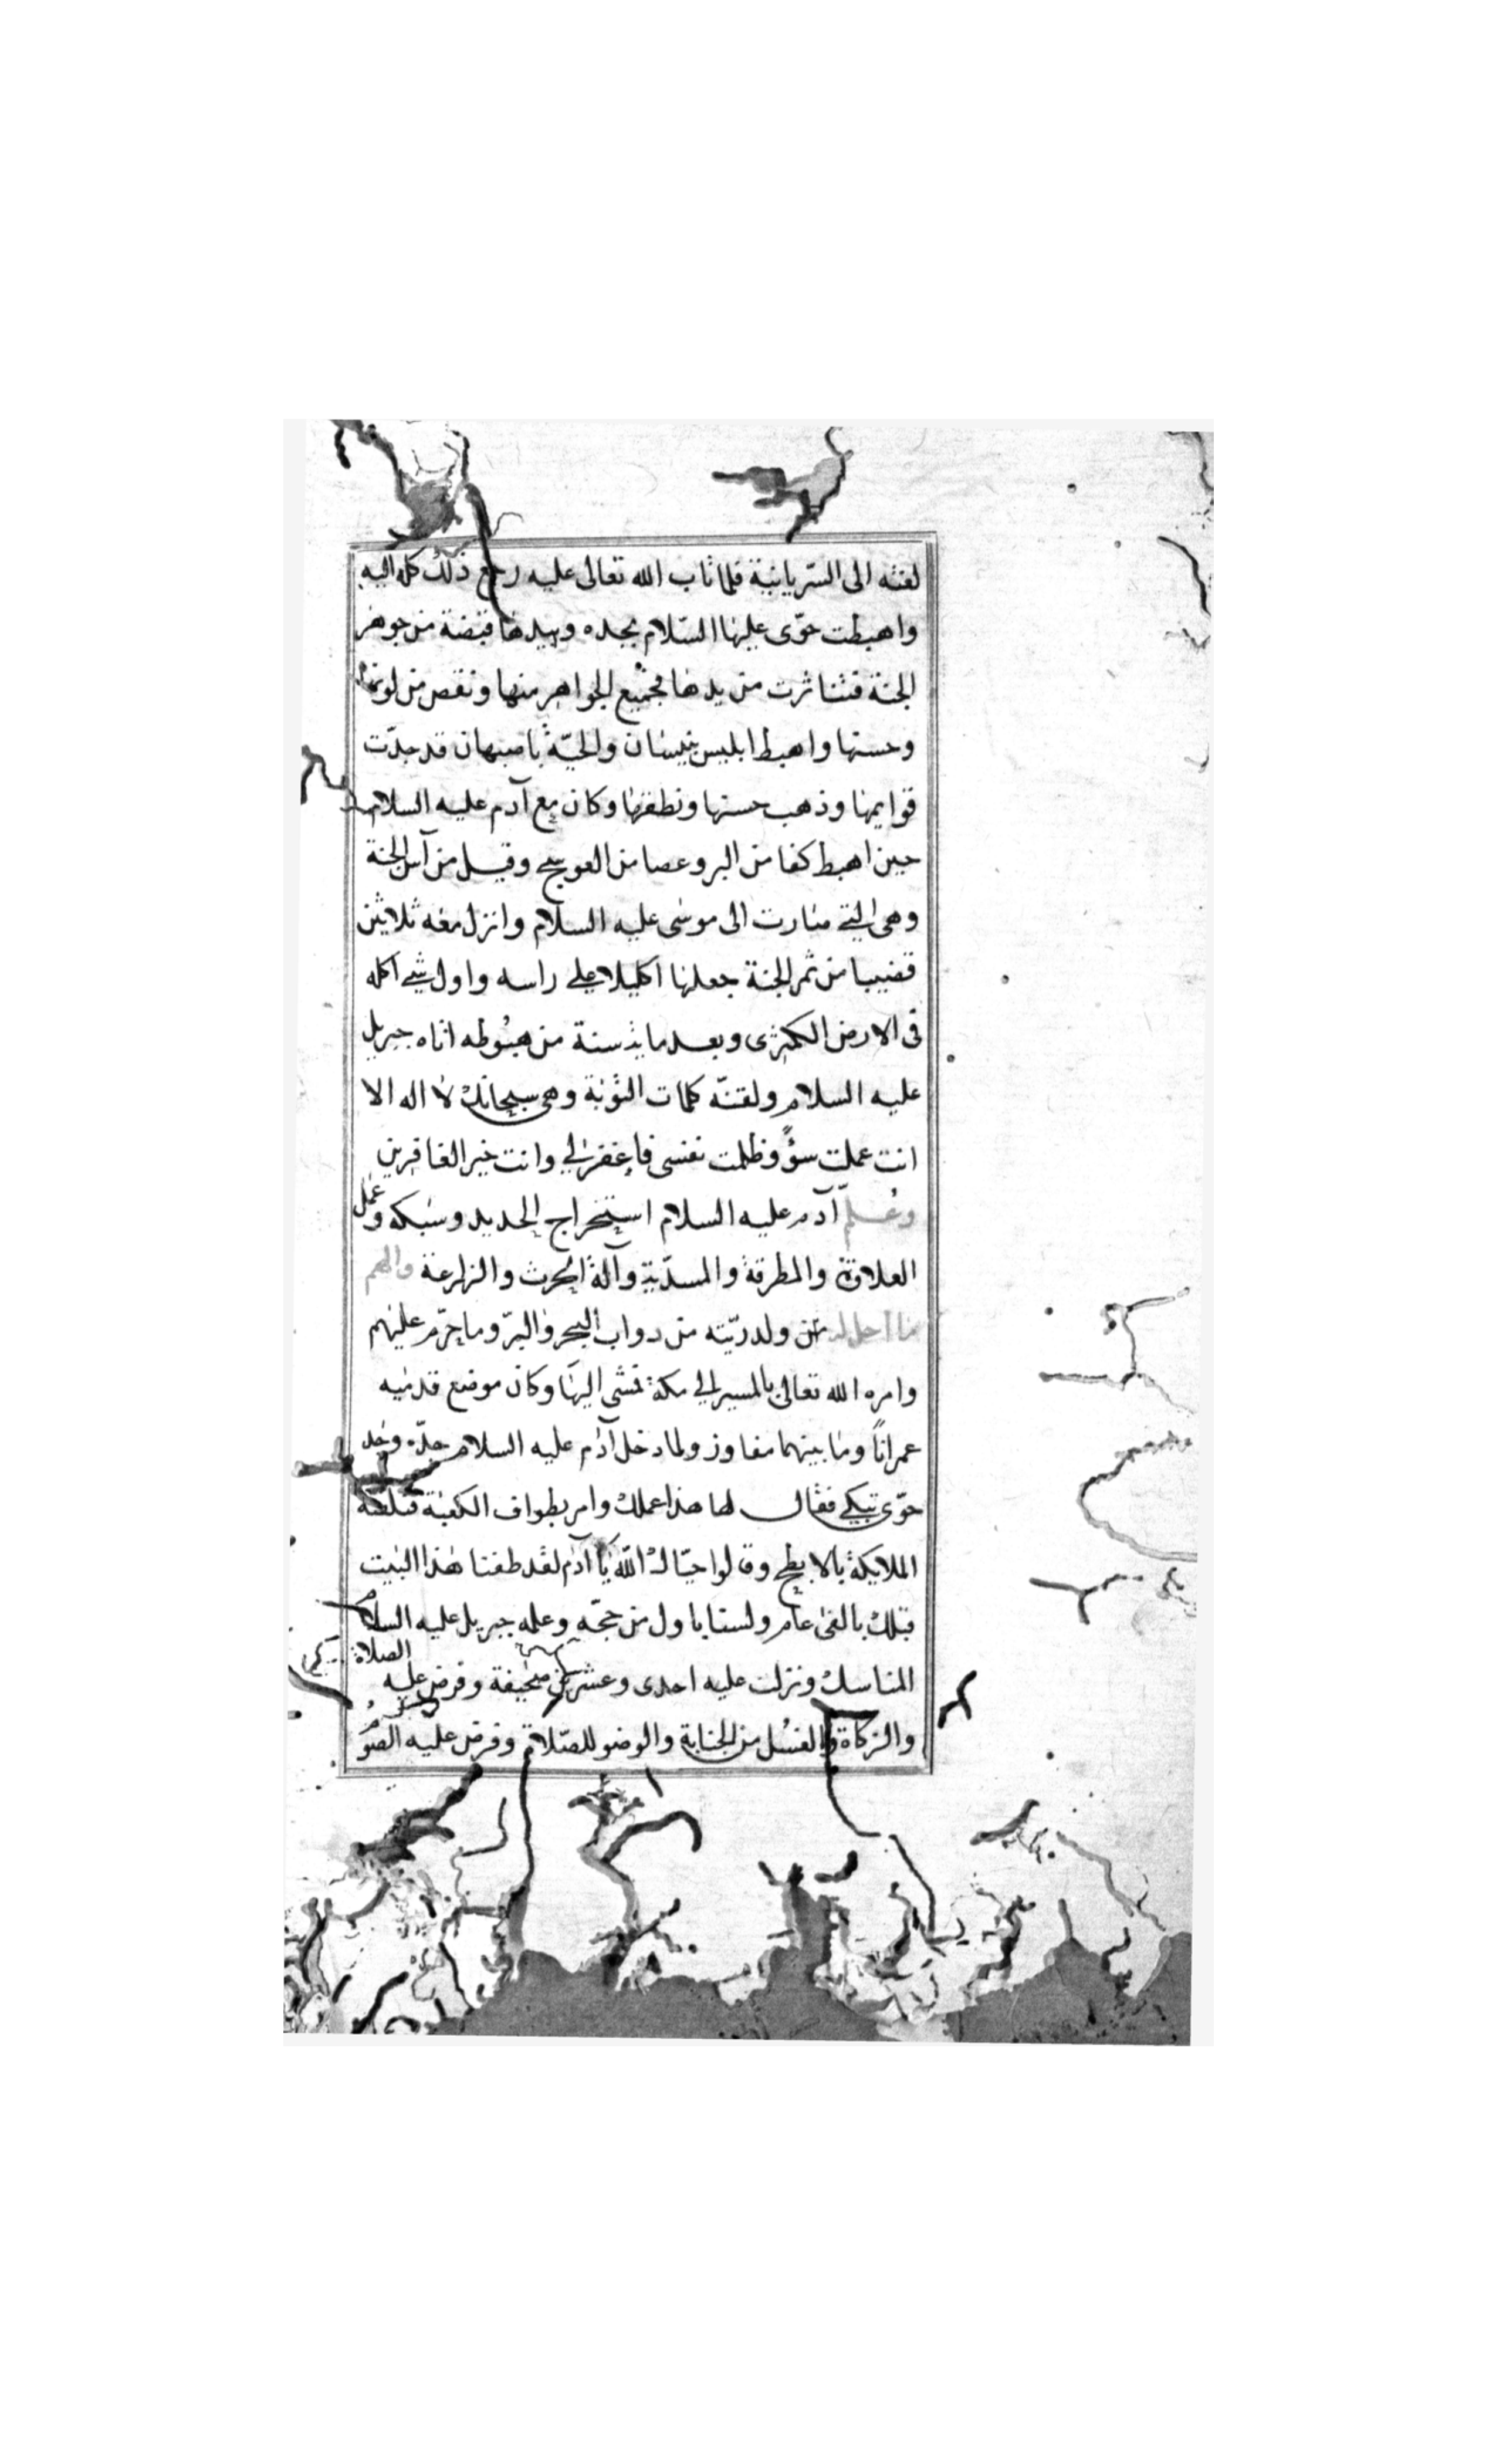 لغته الى السّريانية فلما تاب الله تعالى عليه رجع ذلك كله اليه
واهبطت حوّى عليها السّلام بجده وبيدها قبضة من جوهر
الجنة فتناثرت من يدها فجميع الجواهر منها ونقص من لونها
وحسنها واهبط ابليس بيسان والحيّة باصبهان قد جدّت
قوايمها وذهب حسنها ونطقها وكان مع آدم عليه السلام
حين اهبط كفا من البر وعصا من العوسج وقيل من آس الجنة
وهى التي صارت الى موسى عليه السلام وانزل معه ثلاثين
قضيبا من ثمر الجنة جعلها اكليلا على راسه واول شيء اكله
فى الارض الكمثرى وبعد ماية سنة من هبوطه اتاه جبريل
عليه السلام ولقنّه كلمات التوبة وهى سبحانك لا اله الا
انت عملت سؤً وظلمت نفسى فاغفرلي وانت خير الغافرين
وعُلّم آدم عليه السلام استخراج الحديد وسبكه وعمل
العلاة والمطرقة والمسدّية وآلة الحرث والزراعة والهم
ما احل له من ولدريّته من دواب البحر والبرّ وما حرّم عليهم
وامره الله تعالى بالمسير الي مكة فمشى اليها وكان موضع قدميه
عمراناً وما بينهما مفاوز ولما دخل آدم عليه السلام جدّه وجد
حوّى تبكي فقال لها هذا عملك وامر بطواف الكعبة فتلقته
الملايكة بالابطح وقالوا حيّاك الله يا آدم لقد طفنا هذا البيت
قبلك بالفى عام ولستا باول من حجّه وعلمه جبريل عليه السلام
المناسك ونزلت عليه احدى وعشرين صحيفة وفرض عليه الصلاة
والزكاة والغسُل من الجنابة والوضو للصّلاة وفرض عليه الصّو